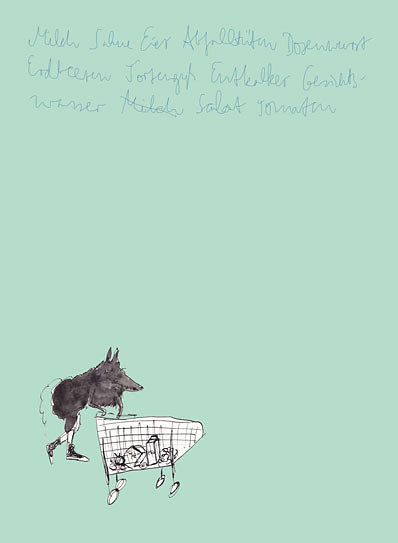 Milch Sahne Eier Abfalltüten Dosenwurst
Erdbeeren Tortenguß Entkalker Gesichts-
wasser Milch Salat Tomaten